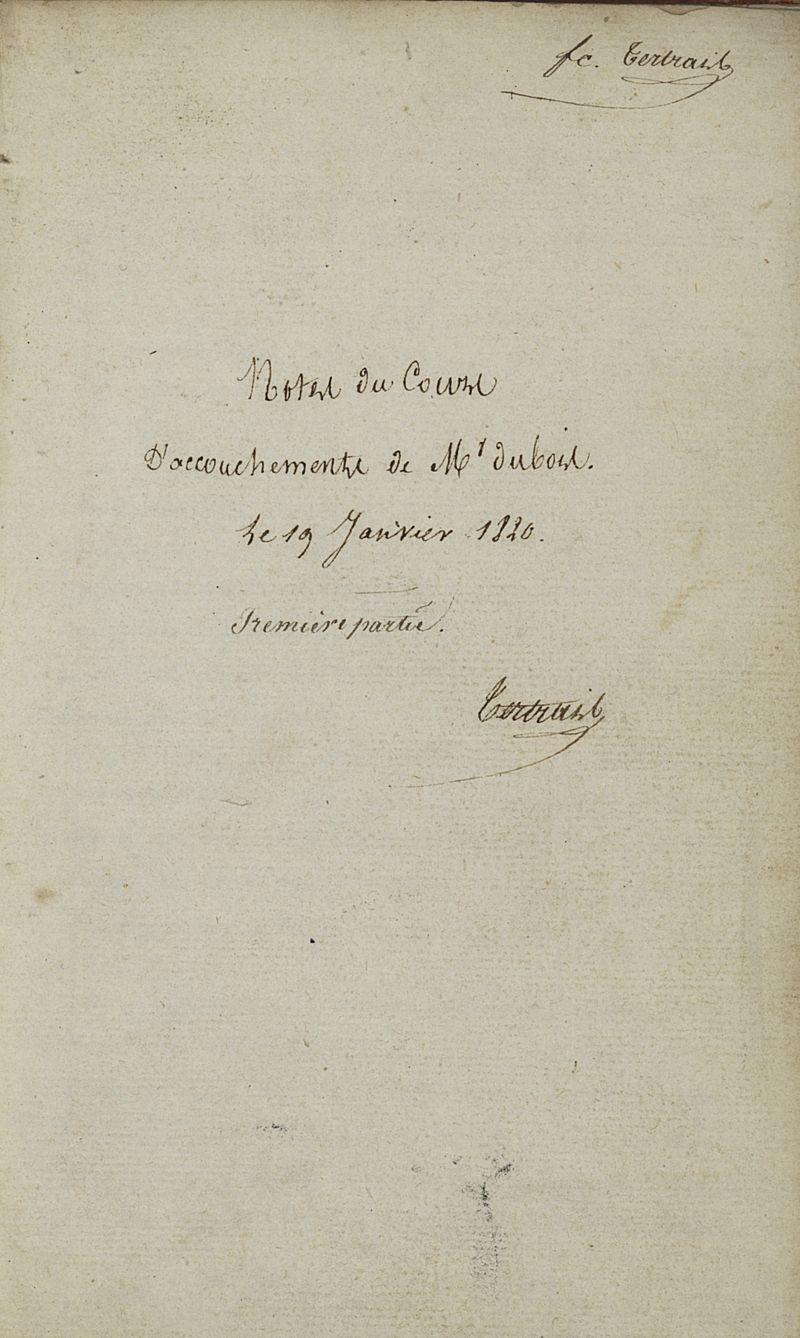 fc. Tertrais
Notes du Cours
D'accouchements de Mr dubois.
Le 19 Janvier 1820.
Première partie.
Tertrais